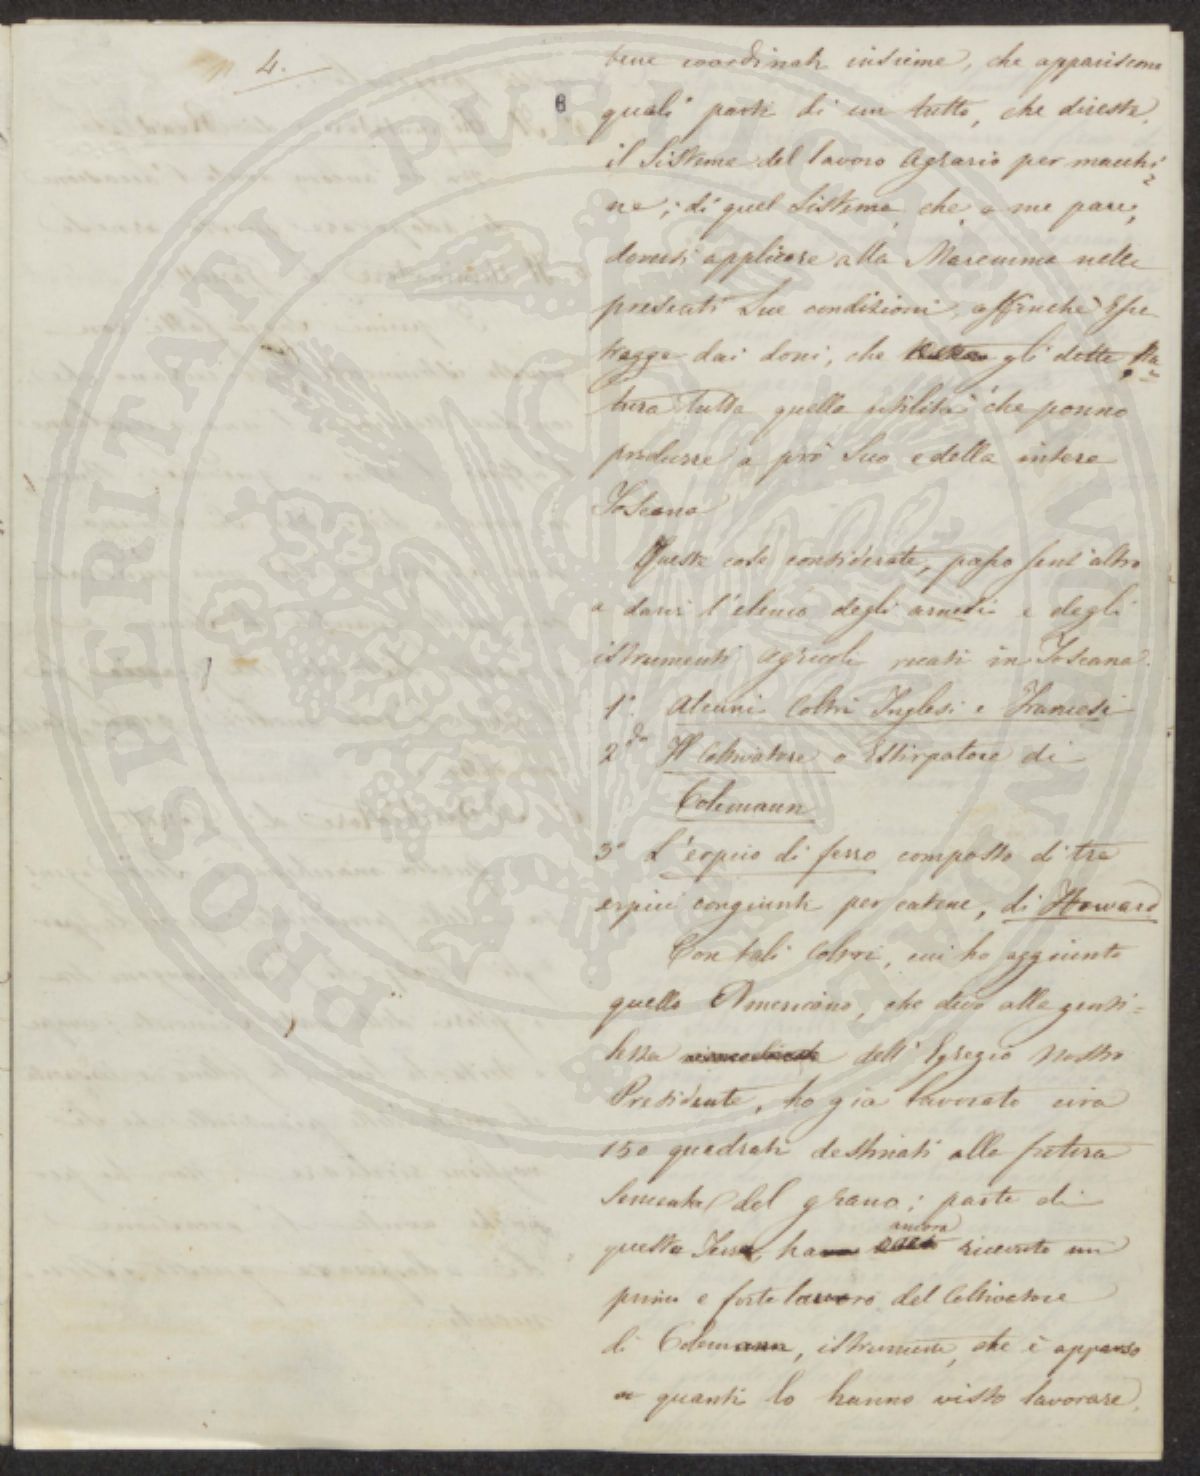 4.
6
bene coordinati insieme, che appariscono
quali parti di un tutto, che direste
il Sistema del lavoro Agrario per macchi
ne; di quel Sistema, che, a me pare,
doversi applicare alla Maremma nelle
presenti Sue condizioni, affinchè Essa
tragga dai doni, che gli dette Na
tura tutta quella utilità che ponno
produrre a prò Suo e della intera
Toscana
Queste cose considerate, passo senz'altro
a darvi l'elenco degli arnesi e degli
istrumenti agricoli recati in Toscana.
1º. Alcuni Coltri Inglesi e Francesi
2do Il Coltivatore o Estirpatore di
Colemann
3º L'erpice di ferro composto di tre
erpici congiunti per catene, di Howard
Con tali Coltri, cui ho aggiunto
quello Americano, che devo alla genti=
lezza dell'Egregio Nostro
Presidente, ho già lavorato circa
150 quadrati destinati alla futura
Sementa del grano; parte di
questa Terra, ha ancora ricevuto un
primo e forte lavoro del Coltivatore
di Colemann, istrumento, che è apparso
a quanti lo hanno visto lavorare,
PROSPERITATI PUBLICAE AUGENDAE